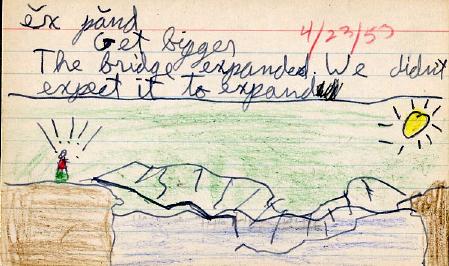 ĕx pănd 4/23/53
Get bigger
The bridge expanded. We didn't
expect it to expand